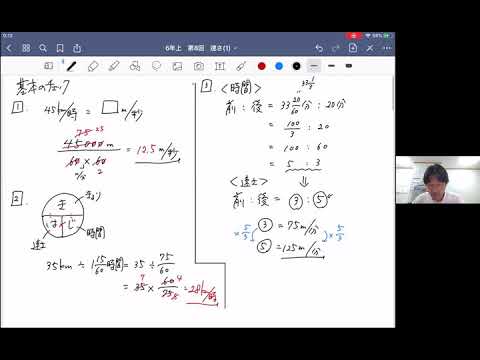 9:13
59%
6年上 第8回 速さ(1)
基本のチェック
1.
45km/時 = □m/秒
75 25
45000m / 60×60 = 12.5m/秒
2
2.
き
は じ
きょり
速さ
時間
35km ÷ 1 15/60 時間 = 35 ÷ 75/60
= 35 × 60/75 = 28km/時
3
<時間>
33 1/3
前:後 = 33 20/60 分 : 20分
= 100/3 : 20
= 100 : 60
= 5 : 3
⇓
<速さ>
前:後 = ③ : ⑤
×5/3 ③ = 75m/分 ×5/3
⑤ = 125m/分